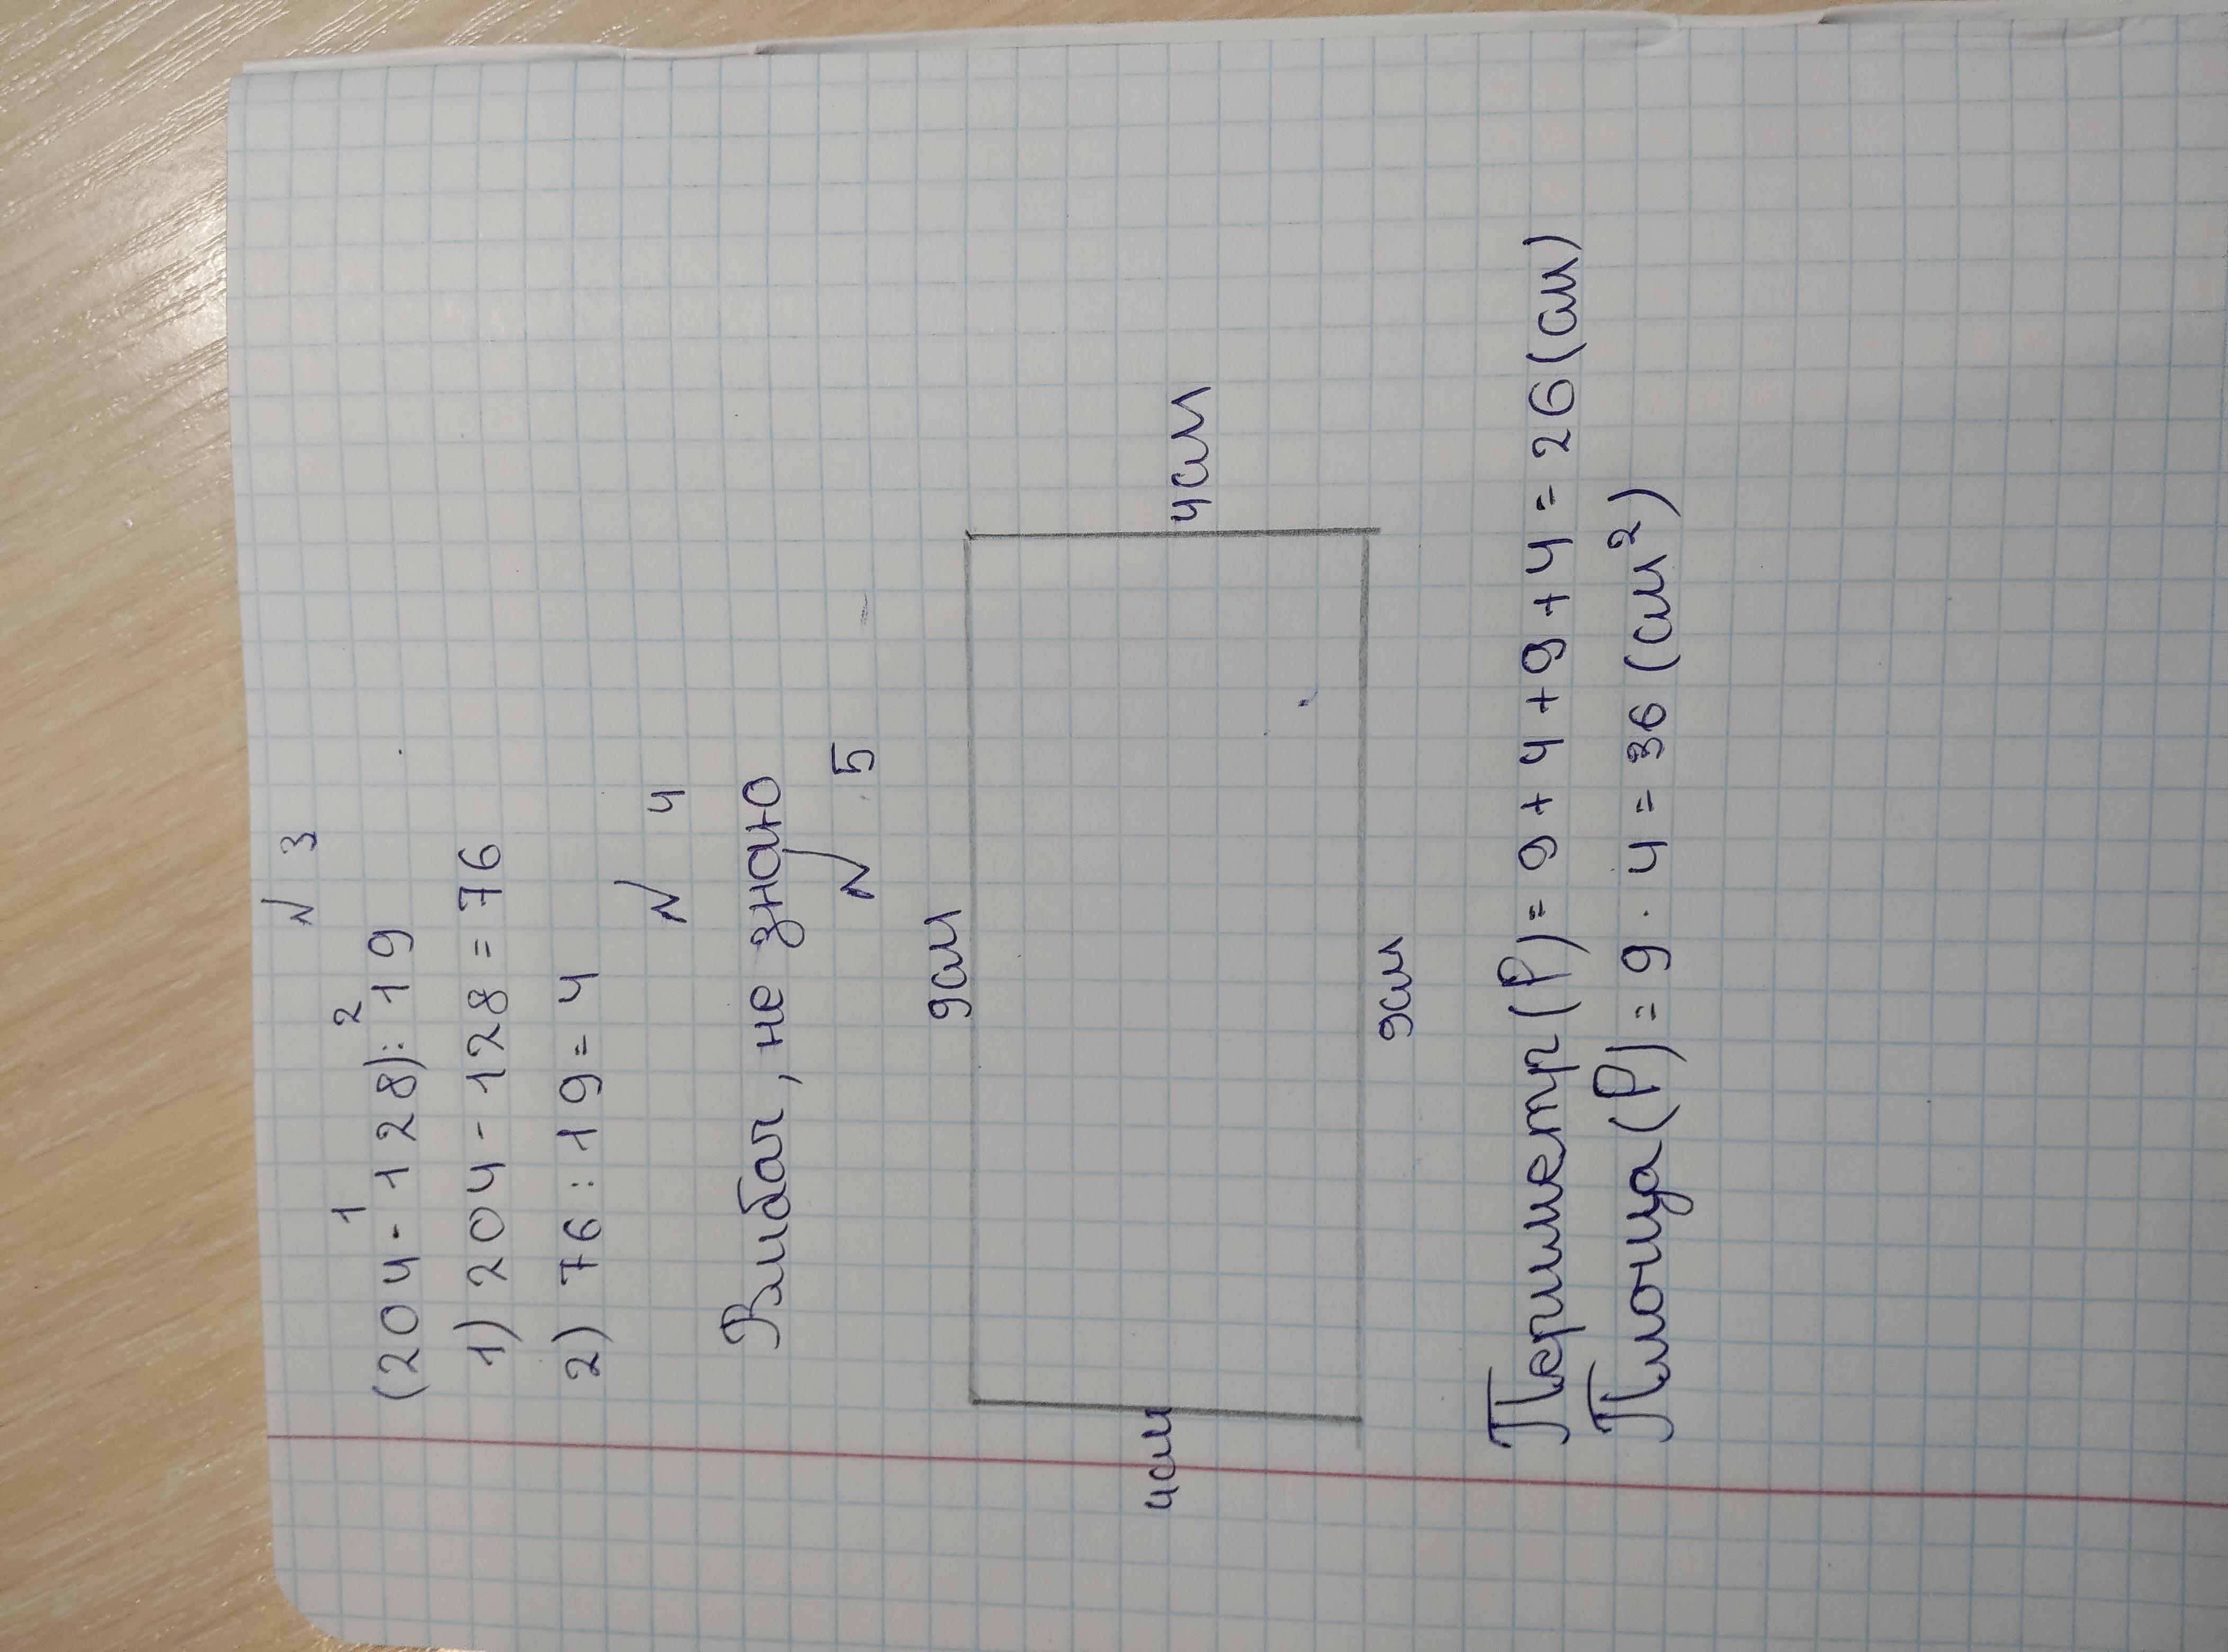 № 3
(204 - 128) : 19
1 2
1) 204 - 128 = 76
2) 76 : 19 = 4
№ 4
Вибач, не знаю
№ 5
9см
4см
4см
9см
Периметр (P) = 9 + 4 + 9 + 4 = 26 (см)
Площа (P) = 9 · 4 = 36 (см²)